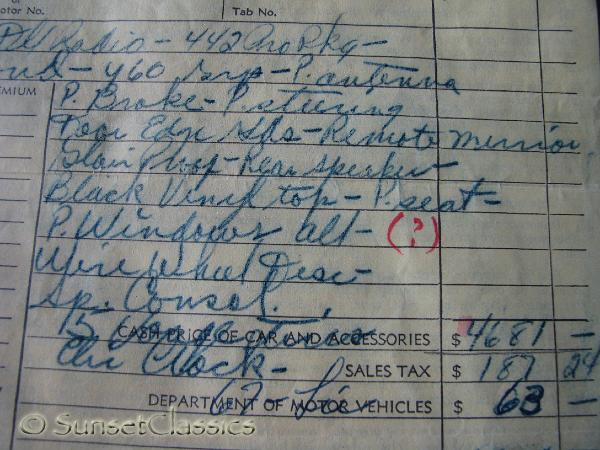 otor No. Tab No.
Radio - 442 Pro Pkg -
- 460 - P. antenna
EMIUM P. Brake - P. steering
Door Edge Gds - Remote mirror
Rear speaker -
Black Vinyl top - P. seat -
P. Windows alt - (?)
Wire Wheel Disc -
Sp. Consol.
15
CASH PRICE OF CAR AND ACCESSORIES $ 4681 -
Elec Clock - SALES TAX $ 187 24
DEPARTMENT OF MOTOR VEHICLES $ 63 -
© SunsetClassics